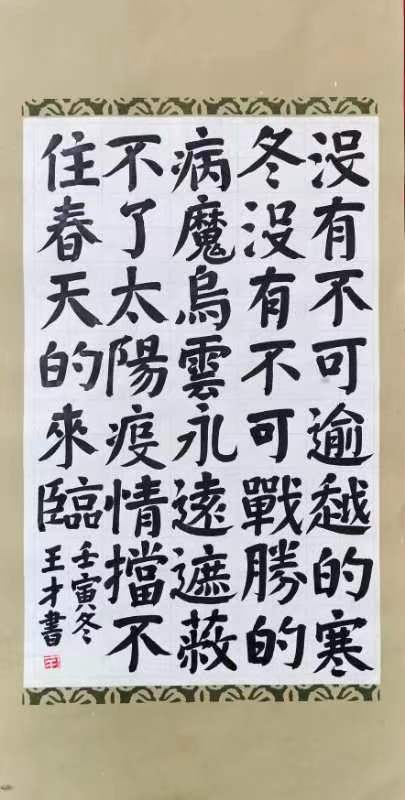 没有不可逾越的寒
冬没有不可戰勝的
病魔烏雲永遠遮蔽
不了太陽疫情擋不
住春天的來臨
壬寅冬
王才書